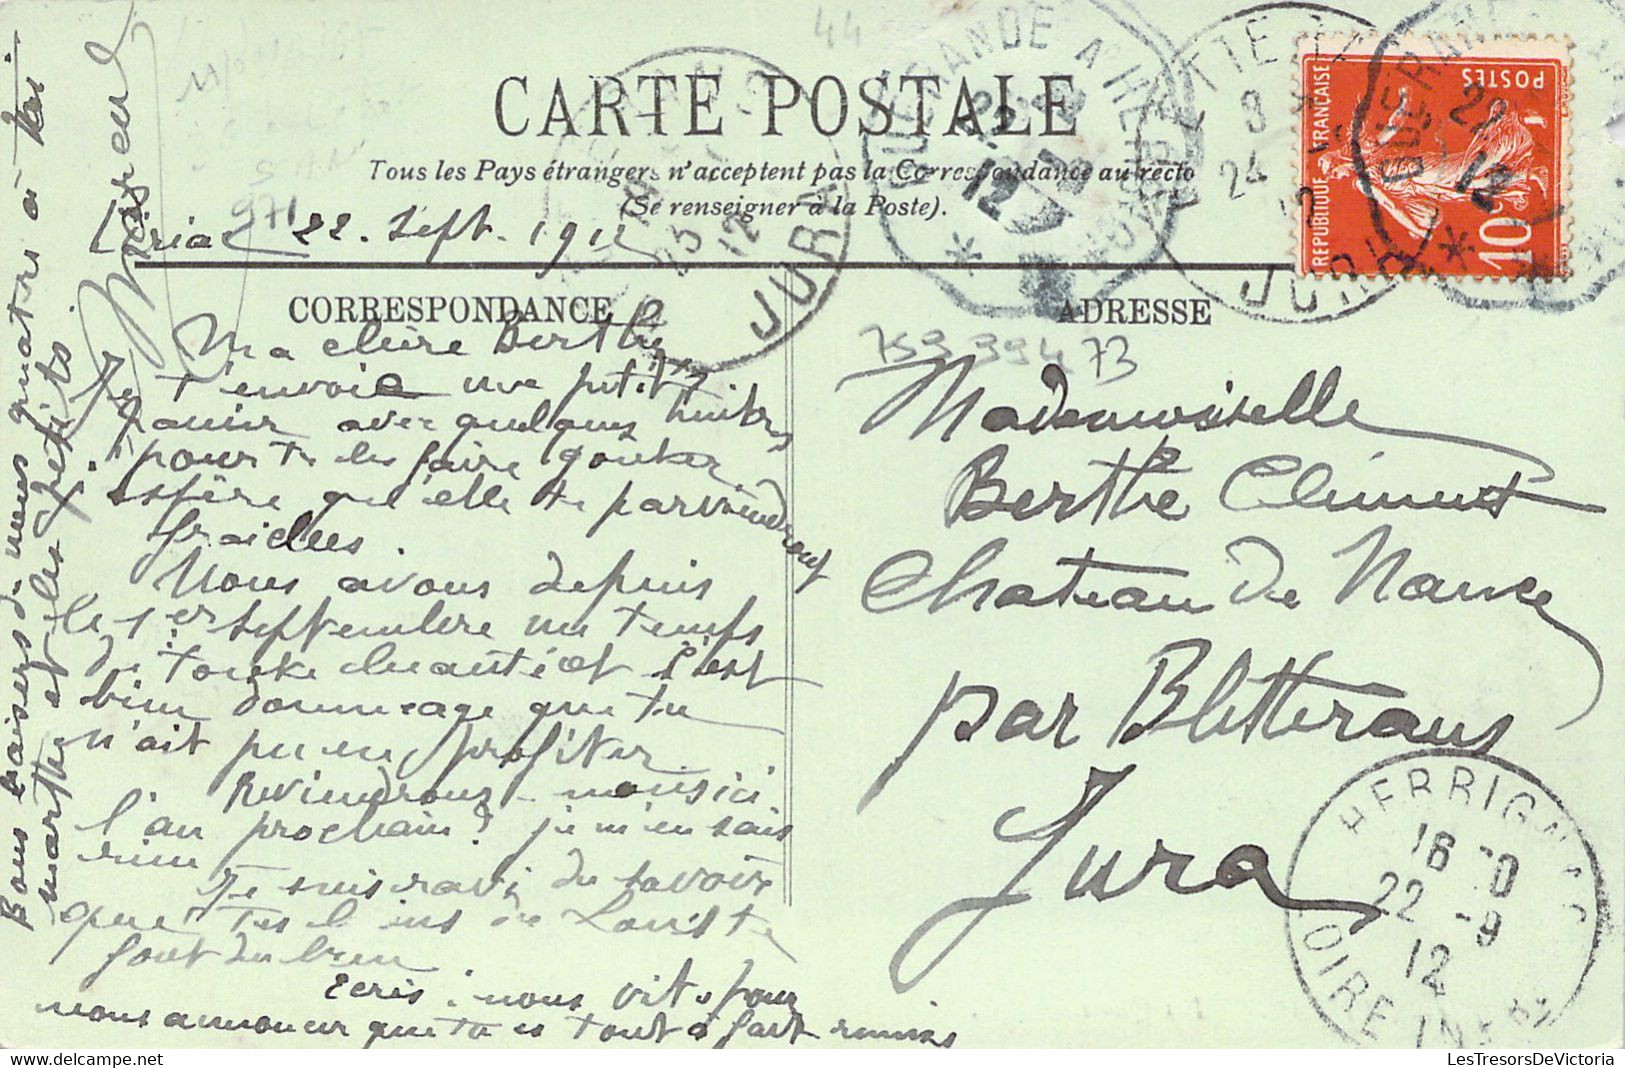 CARTE POSTALE
Tous les Pays étrangers n'acceptent pas la Correspondance au recto
(Se renseigner à la Poste).
22. Sept. 1912
CORRESPONDANCE
ADRESSE
Ma chère Berthe
Je t'envoie une petit
panier avec quelques huitres
pour te les faire gouter
espère qu'elle te parviendront
fraiches.
Nous avons depuis
le 1er septembre un temps
de toute beauté et c'est
bien dommage que tu
n'ait pu en profiter.
Reviendrons-nous ici
l'an prochain? je n'en sais
rien
Je suis ravi de savoir
que tes bains de
font du bien
Ecris: nous vite pour
nous annoncer que tu es tout à fait remise
Bons baisers de nous quatre à toi
Marthe et les petits.
Mademoiselle
Berthe Clément
Chateau de Nance
par Bletterans
Jura
759 394 73
44
971
RÉPUBLIQUE FRANÇAISE
POSTES
10c
GUERANDE A
22
12
JURA
24
12
JURA
HERBIGNAC
16-0
22-9
12
LOIRE INFRE
LesTresorsDeVictoria